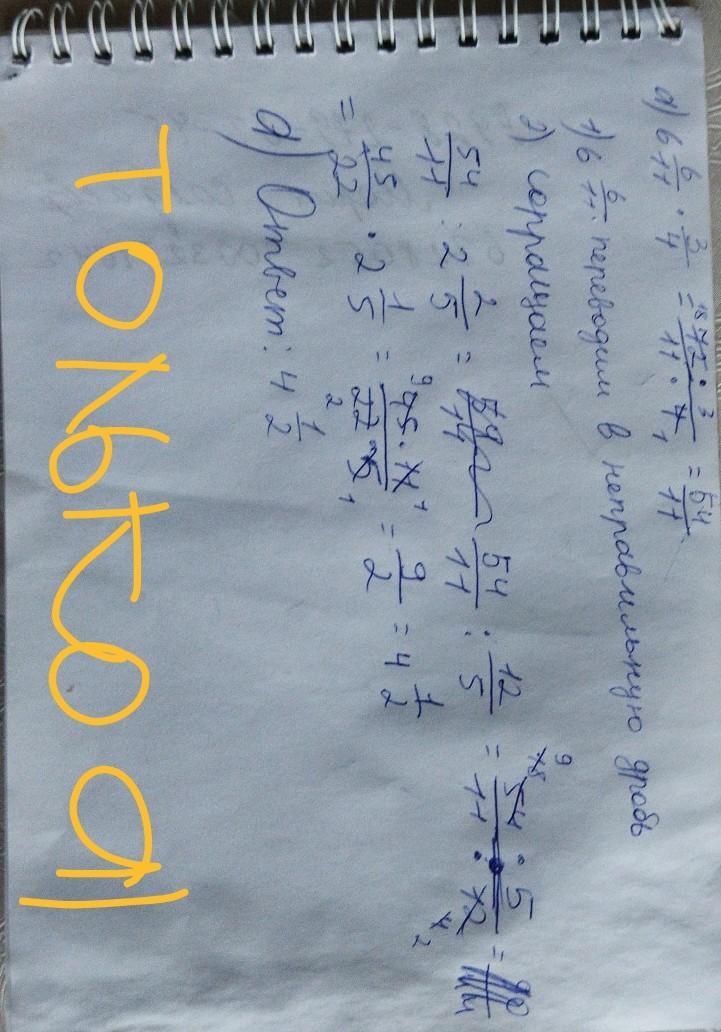 а) 6 6/11 · 3/4 = 18 72 · 3 / 11 · 4 1 = 54/11
1) 6 6/11 переводим в неправильную дробь
2) сокращаем
54/11 : 2 2/5 = 54/11 : 12/5 = 9 18 54 · 5 / 11 · 12 4 2 =
= 45/22 · 2 1/5 = 9 45 · 11 1 / 22 · 5 2 1 = 9/2 = 4 1/2
а) Ответ: 4 1/2
ТОЛЬКО а)